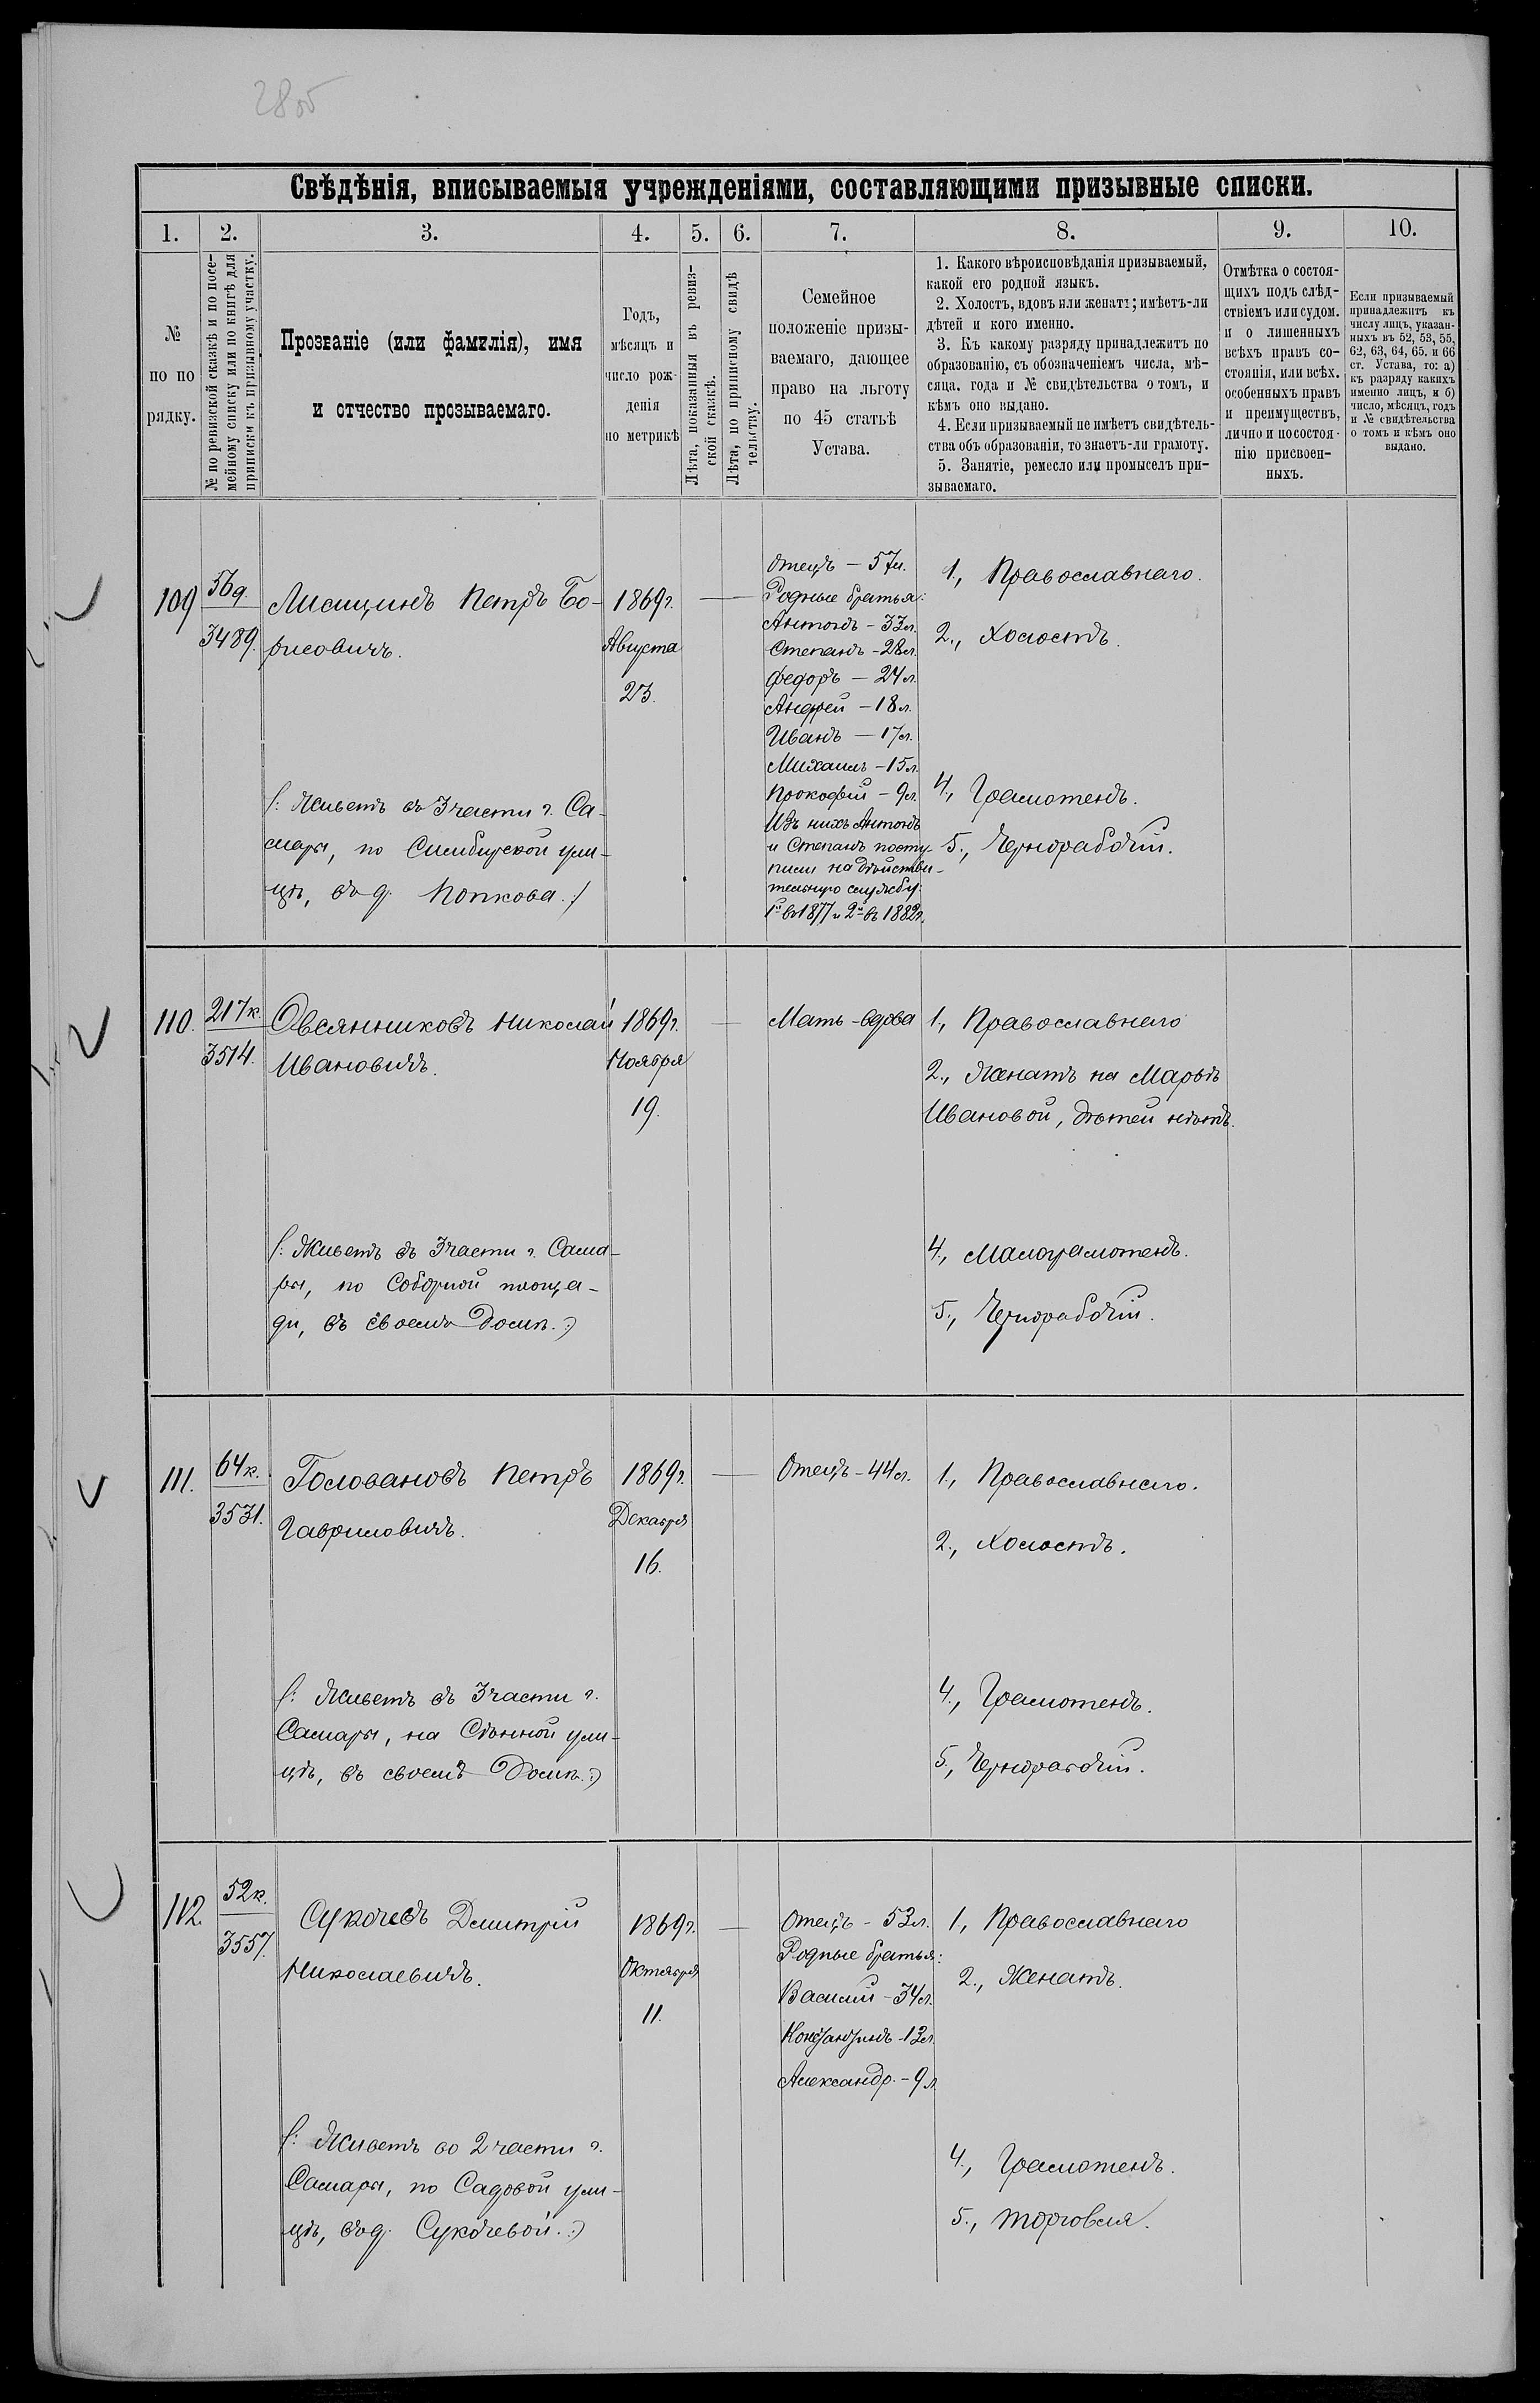 2805
Свѣдѣнія, вписываемыя учрежденіями, составляющими призывные списки.
1.
2.
3.
4.
5.
6.
7.
8.
9.
10.
№
по по
рядку.
№ по ревизской сказкѣ и по посе-
мейному списку или по книгѣ для
приписки къ призывному участку.
Прозваніе (или фамилія), имя
и отчество прозываемаго.
Годъ,
мѣсяцъ и
число рож-
денія
по метрикѣ
Лѣта, показанныя въ ревиз-
ской сказкѣ.
Лѣта, по приписному свидѣ
тельству.
Семейное
положеніе призы-
ваемаго, дающее
право на льготу
по 45 статьѣ
Устава.
1. Какого вѣроисповѣданія призываемый,
какой его родной языкъ.
2. Холостъ, вдовъ или женатъ; имѣетъ-ли
дѣтей и кого именно.
3. Къ какому разряду принадлежитъ по
образованію, съ обозначеніемъ числа, мѣ-
сяца, года и № свидѣтельства о томъ, и
кѣмъ оно выдано.
4. Если призываемый не имѣетъ свидѣтель-
ства объ образованіи, то знаетъ-ли грамоту.
5. Занятіе, ремесло или промыселъ при-
зываемаго.
Отмѣтка о состоя-
щихъ подъ слѣд-
ствіемъ или судом.
и о лишенныхъ
всѣхъ правъ со-
стоянія, или всѣх.
особенныхъ правъ
и преимуществъ,
лично и по состоя-
нію присвоен-
ныхъ.
Если призываемый
принадлежитъ къ
числу лицъ, указан-
ныхъ въ 52, 53, 55,
62, 63, 64, 65. и 66
ст. Устава, то: а)
къ разряду какихъ
именно лицъ, и б)
число, мѣсяцъ, годъ
и № свидѣтельства
о томъ и кѣмъ оно
выдано.
109
56д.
3489.
Лисицинъ Петръ Бо-
рисовичъ.
1869г.
Августа
23.
Отецъ – 57л.
Родные братья:
Антонъ – 33л.
Степанъ – 28л.
Федоръ – 24л.
Андрей – 18л.
Иванъ – 17л.
Михаилъ – 15л.
Прокофій – 9л.
Изъ нихъ Антонъ
и Степанъ посту-
пили на дѣйстви-
тельную службу:
1й въ 1877 и 2й въ 1882г.
1., Православнаго.
2., Холостъ.
4., Грамотенъ.
5., Чернорабочій.
/: Живетъ въ 3 части г. Са-
мары, по Симбирской ули-
цѣ, въ д. Попкова. :/
110.
217к.
3514.
Овсянниковъ Николай
Ивановичъ.
1869г.
Ноября
19.
Мать – вдова
1., Православнаго
2., Женатъ на Марьѣ
Ивановой, дѣтей нѣтъ.
4., Малограмотенъ.
5., Чернорабочій.
/: Живетъ въ 3 части г. Сама-
ры, по Соборной площа-
ди, въ своемъ домѣ. :/
111.
64к.
3531.
Головановъ Петръ
Гавриловичъ.
1869г.
Декабря
16.
Отецъ – 44л.
1., Православнаго.
2., Холостъ.
4., Грамотенъ.
5., Чернорабочій.
/: Живетъ въ 3 части г.
Самары, на Сѣнной ули-
цѣ, въ своемъ домѣ. :/
112.
52к.
3557.
Сукачевъ Дмитрій
Николаевичъ.
1869г.
Октября
11.
Отецъ – 53л.
Родные братья:
Василій – 34л.
Константинъ – 13л.
Александр. – 9л.
1., Православнаго
2., Женатъ.
4., Грамотенъ.
5., Торговля.
/: Живетъ во 2 части г.
Самары, по Садовой ули-
цѣ, въ д. Сукачевой. :/